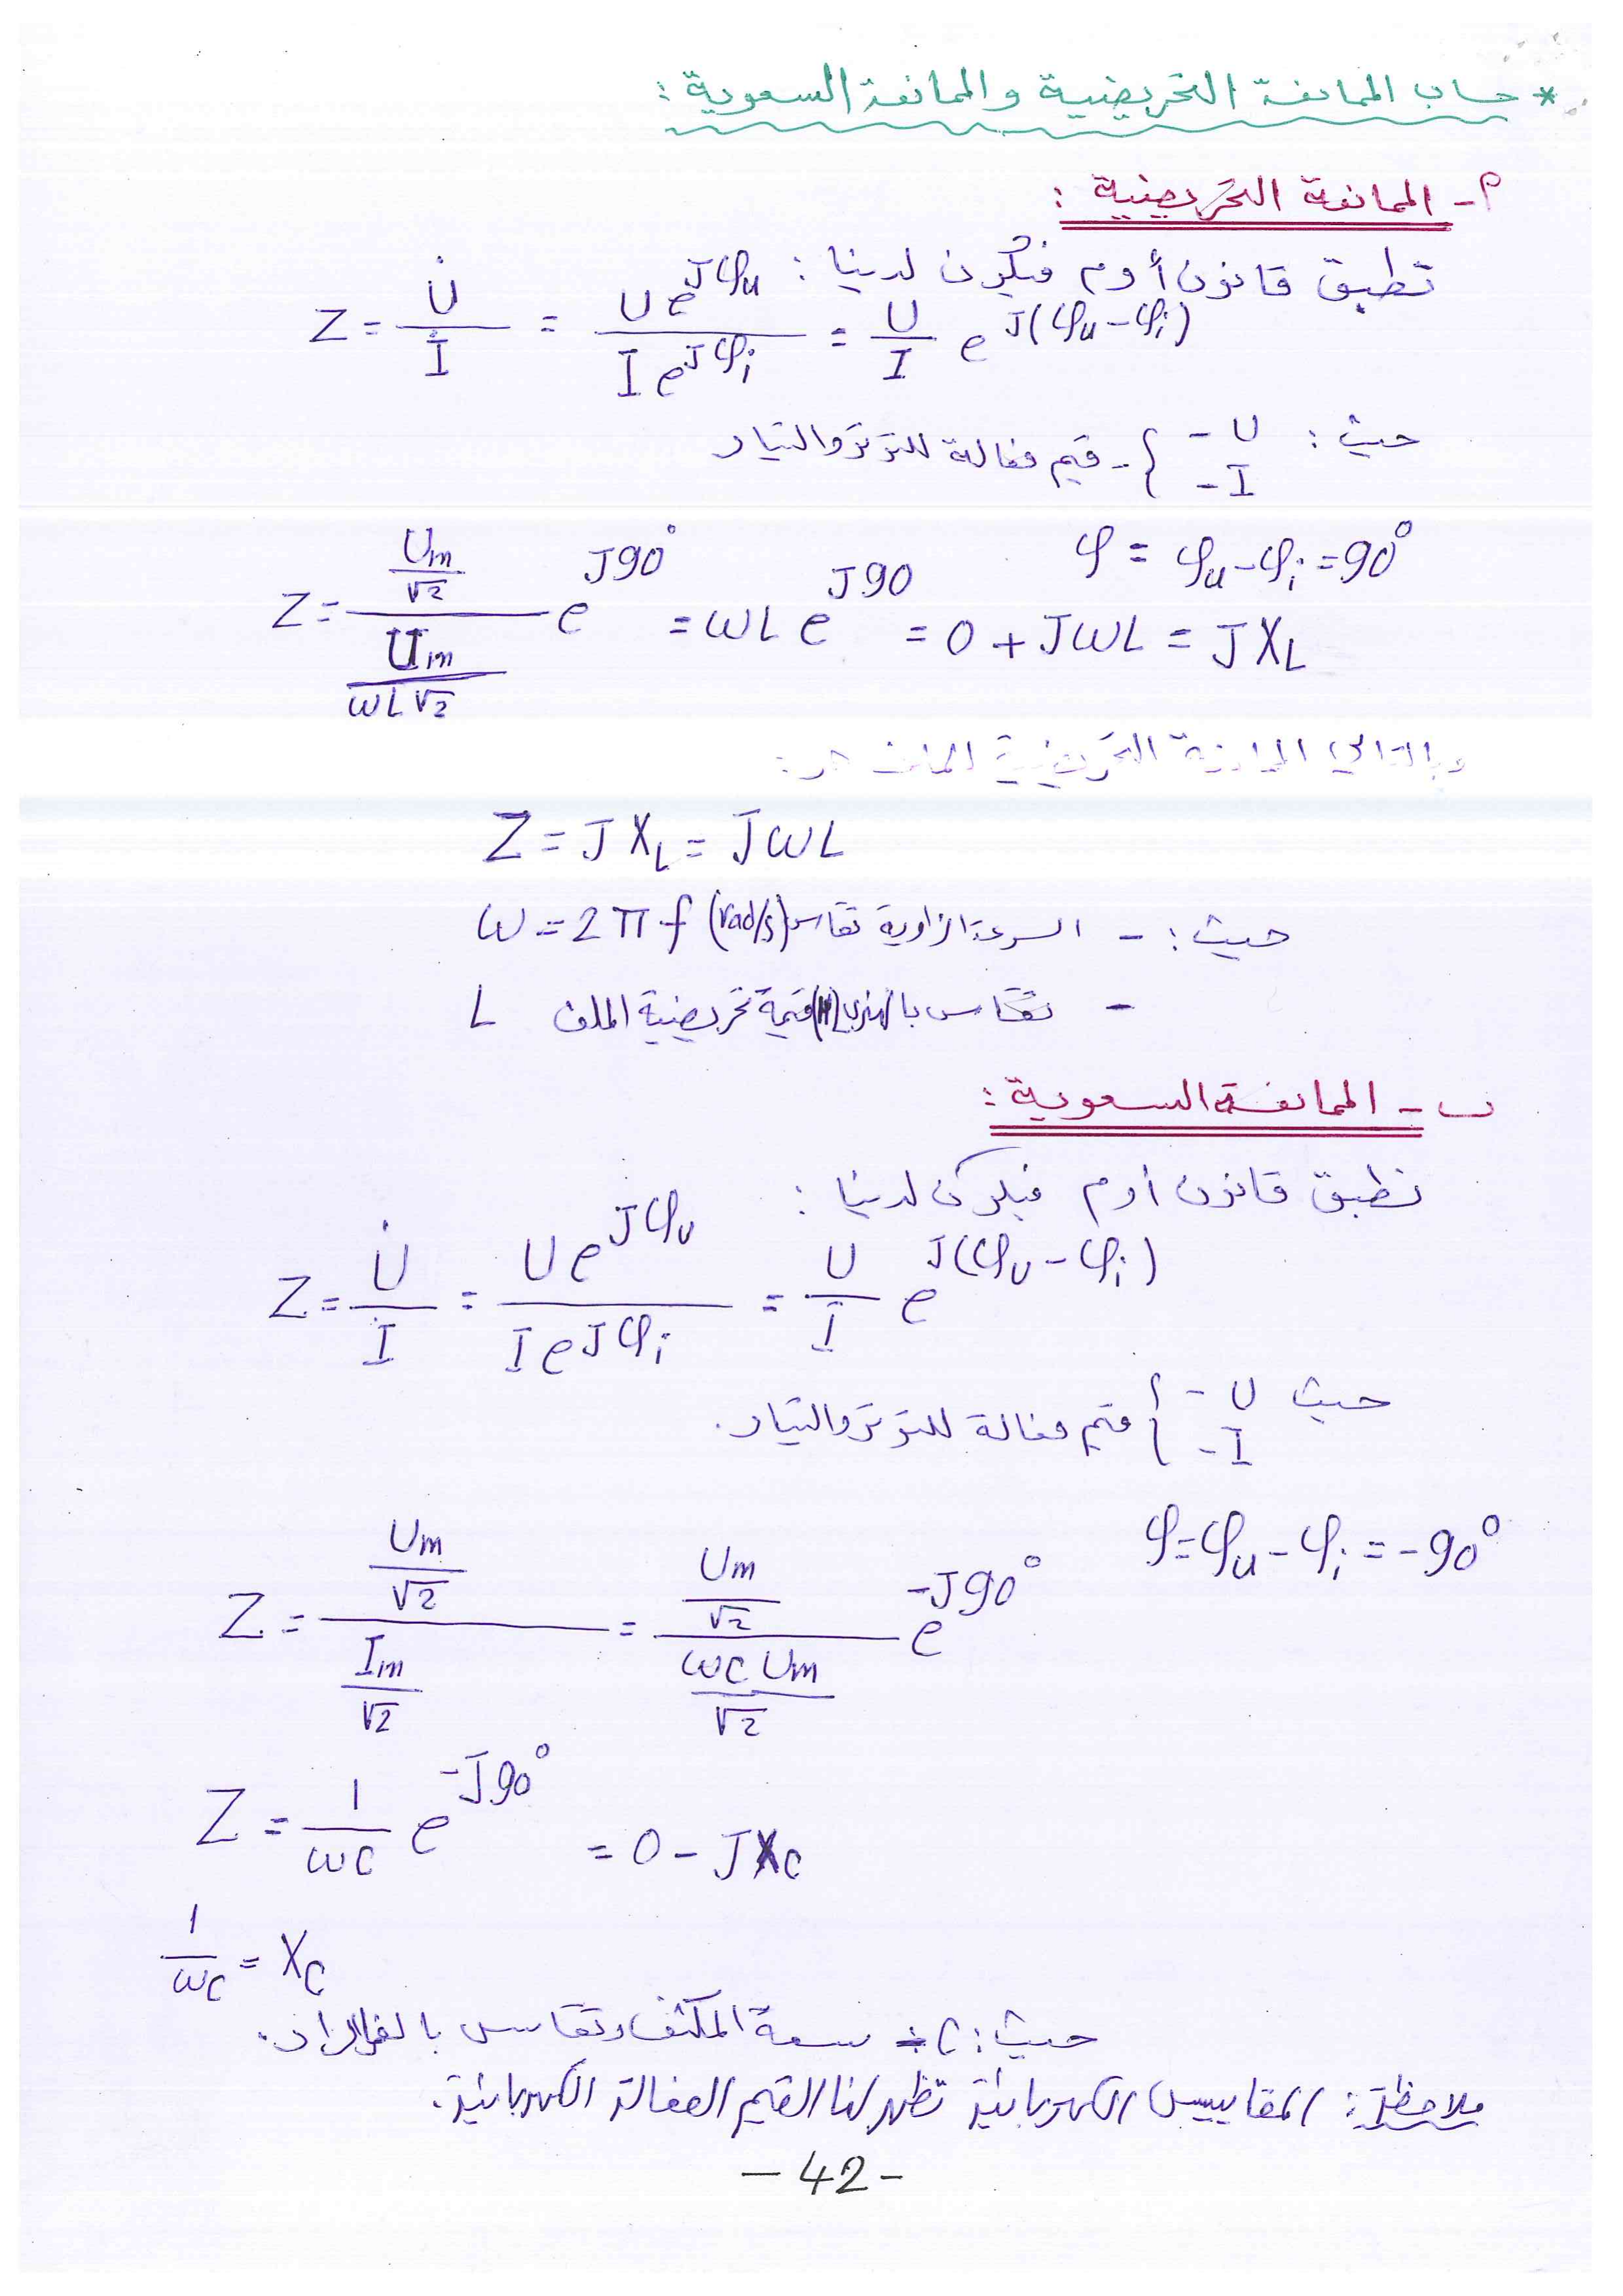 * حساب الممانعة التحريضية والممانعة السعوية :
أ- الممانعة التحريضية :
نطبق قانون أوم فيكون لدينا :
Z = U̇ / İ = U e^{Jφu} / I e^{Jφi} = U/I e^{J(φu-φi)}
حيث : U - I - } - قيم فعالة للتوتر والتيار
φ = φu - φi = 90°
Z = (Um/√2) / (Um/ωL√2) e^{J90°} = ωL e^{J90} = 0 + JωL = J XL
وبالتالي الممانعة التحريضية للملف هي :
Z = J XL = JωL
حيث : - السرعة الزاوية تقاس (rad/s) ω = 2πf
- تقاس بالهنري (H) قيمة تحريضية الملف L
ب - الممانعة السعوية :
نطبق قانون أوم فيكون لدينا :
Z = U̇ / İ = U e^{Jφu} / I e^{Jφi} = U/I e^{J(φu-φi)}
حيث U - I - } قيم فعالة للتوتر والتيار .
φ = φu - φi = -90°
Z = (Um/√2) / (Im/√2) = (Um/√2) / (ωC Um/√2) e^{-J90°}
Z = 1/ωC e^{-J90°} = 0 - J XC
1/ωC = XC
حيث : C ÷ سعة المكثف وتقاس بالفاراد .
ملاحظة : المقاييس الكهربائية تظهر لنا القيم الفعالة الكهربائية .
- 42 -